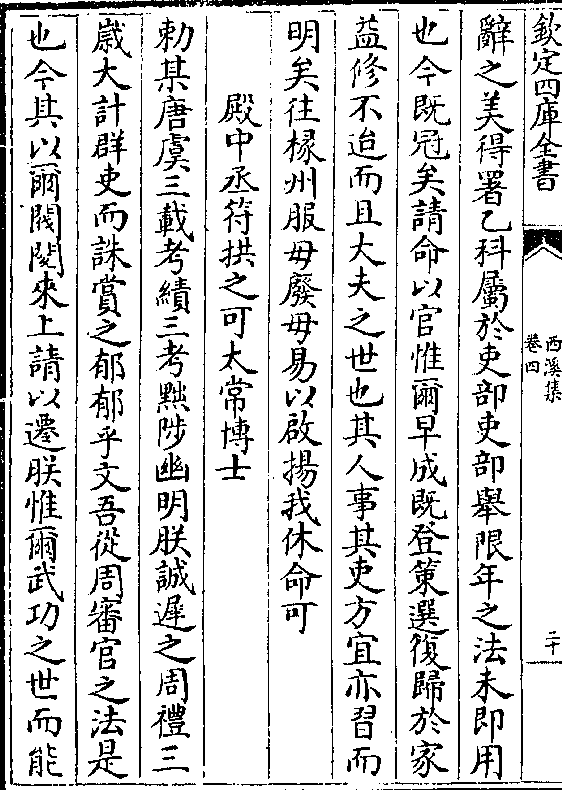 欽定四庫全書
西溪集
卷四
二十
辭之美得署乙科屬於吏部吏部舉限年之法未即用
也今既冠矣請命以官惟爾早成既登策選復歸於家
益修不迨而且大夫之世也其人事其吏方宜亦習而
明矣往椽州服毋廢毋易以啟揚我休命可
殿中丞符拱之可太常博士
勅某唐虞三載考績三考黜陟幽明朕誠遲之周禮三
嵗大計群吏而誅賞之郁郁乎文吾從周審官之法是
也今其以爾閥閲來上請以遷朕惟爾武功之世而能